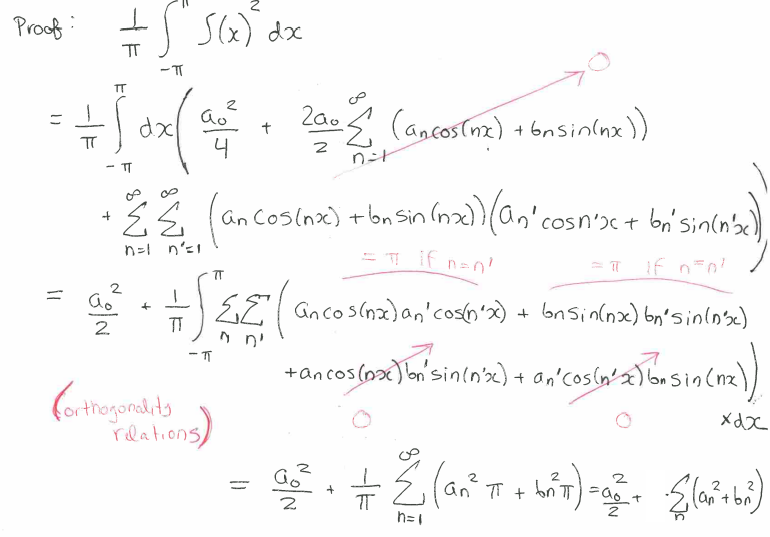 Proof: 1/π ∫_{-π}^{π} f(x)² dx
= 1/π ∫_{-π}^{π} dx ( a₀²/4 + 2a₀/2 ∑_{n=1}^{∞} (aₙcos(nx) + bₙsin(nx)) 0
+ ∑_{n=1}^{∞} ∑_{n'=1}^{∞} (aₙcos(nx) + bₙsin(nx))(aₙ'cosn'x + bₙ'sin(n'x)) )
= π if n=n' = π if n=n'
= a₀²/2 + 1/π ∫_{-π}^{π} ∑_n ∑_{n'} ( aₙcos(nx)aₙ'cos(n'x) + bₙsin(nx)bₙ'sin(n'x)
+ aₙcos(nx)bₙ'sin(n'x) + aₙ'cos(n'x)bₙsin(nx) )
(orthogonality relations) 0 0 ×dx
= a₀²/2 + 1/π ∑_{n=1}^{∞} (aₙ²π + bₙ²π) = a₀²/2 + ∑_n (aₙ²+bₙ²)